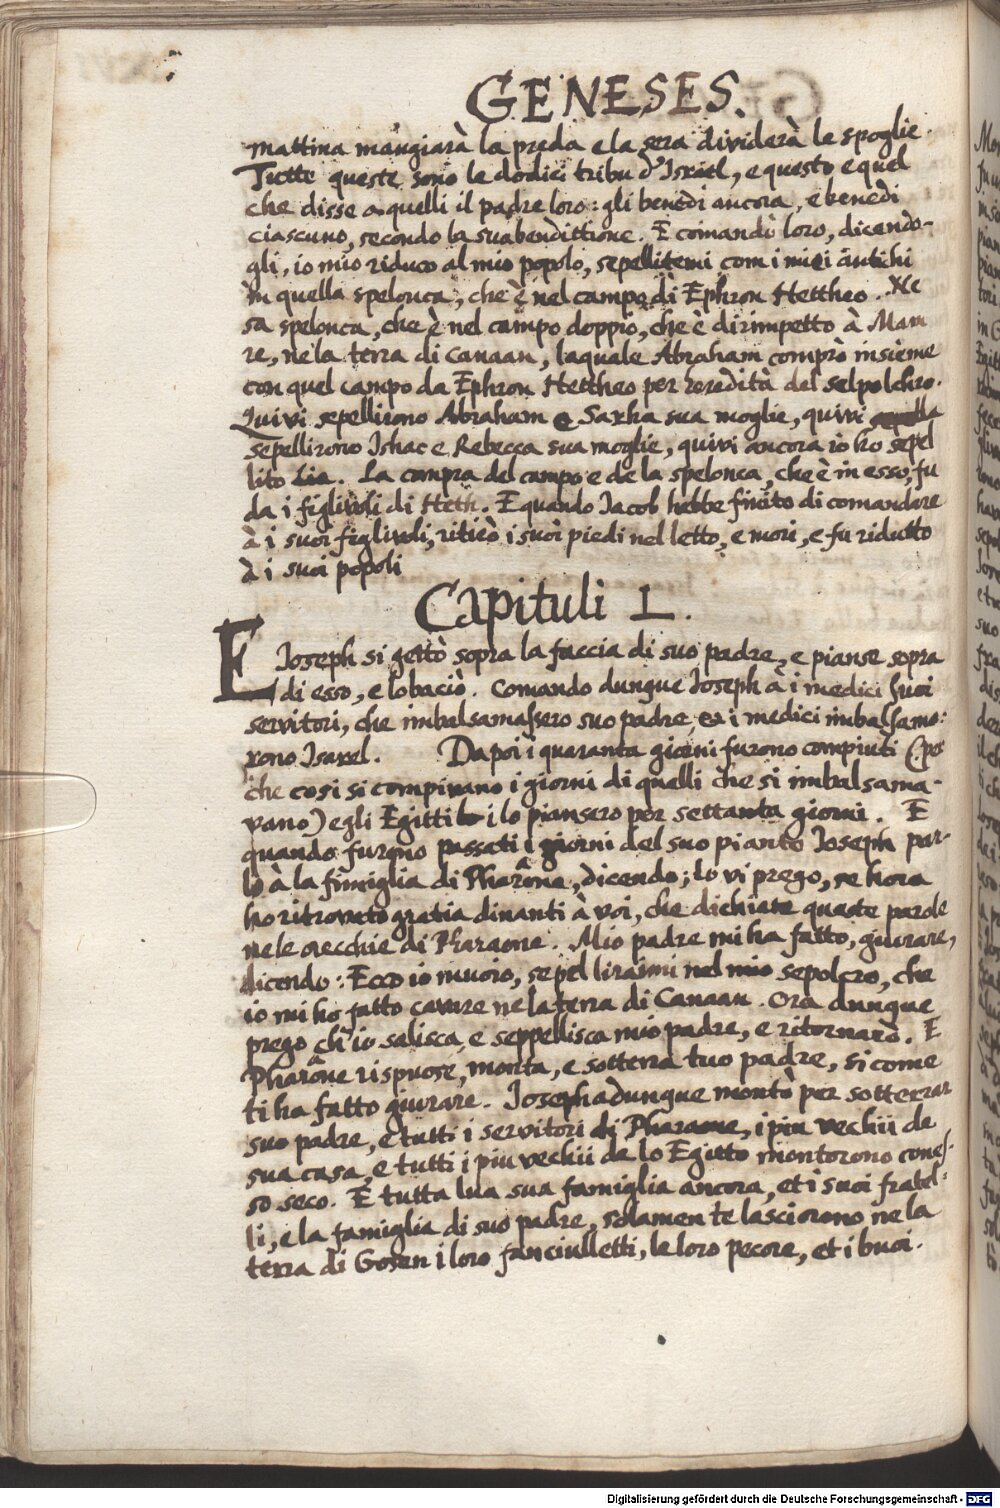 GENESES.
mattina mangiarà la preda e la sera dividerà le spoglie.
Tutte queste sono le dodici tribu d'Israel, e questo e quel
che disse a quelli il padre loro: gli benedi ancora, e benedi
ciascuno, secondo la sua bendittione. E comandò loro, dicendo-
gli, io mio riduco al mio popolo, sepellitemi com i miei antichi
in quella spelonca, che è nel campo di Ephron Hettheo. Ne
sa spelonca, che è nel campo doppio, che è dirimpetto à Mam
re, ne la terra di Canaan, laquale Abraham comprò insieme
con quel campo da Ephron Hettheo per heredità del selpolchro.
Quivi sepellirono Abraham e Sarha sua moglie, quivi
sepellirono Ishac e Rebecca sua moglie, quivi ancora io ho sepel
lito Lia. La compra del campo e de la spelonca, che è in esso, fu
da i figlivoli di Heth. E quando Jacob hebbe finito di comandare
à i suoi figlivoli, ritirò i suoi piedi nel letto, e mori, e fu ridutto
à i suoi popoli
Capituli L.
E Joseph si gettò sopra la faccia di suo padre, e pianse sopra
di esso, e lo baciò. Comando dunque Joseph à i medici suoi
servitori, che imbalsamassero suo padre, et i medici imbalsamo:
rono Israel. Dapoi i quaranta giorni furono compiuti (per
che cosi si compivano i giorni di quelli che si imbalsama-
vano) e gli Egitti i lo piansero per settanta giorni. E
quando furono passati i giorni del suo pianto Joseph par-
lò à la fimiglia di Pharaone, dicendo; Io vi prego, se hora
ho ritrovato gratia dinanti à voi, che dichiate queste parole
ne le orecchie di Pharaone. Mio padre mi ha fatto, giurare,
dicendo: Ecco io muoio, sepel liraimi nel mio sepolcro, che
io mi ho fatto cavare ne la terra di Canaan. Ora dunque
prego ch'io salisca, e seppellisca mio padre, e ritornarò. E
Pharaone rispuose, monta, e sotterra tuo padre, si come
ti ha fatto giurare. Joseph adunque montò per sotterrar
suo padre, e tutti i servitori di Pharaone, i piu vechii de
sua casa, e tutti i piu vechii de lo Egitto montorono cones-
so seco. E tutta lua sua famiglia ancora, et i suoi fratel-
li, e la famiglia di suo padre, solamen te lasciorono ne la
terra di Gosen i loro fanciulletti, le loro pecore, et i buoi.
Digitalisierung gefördert durch die Deutsche Forschungsgemeinschaft - DFG